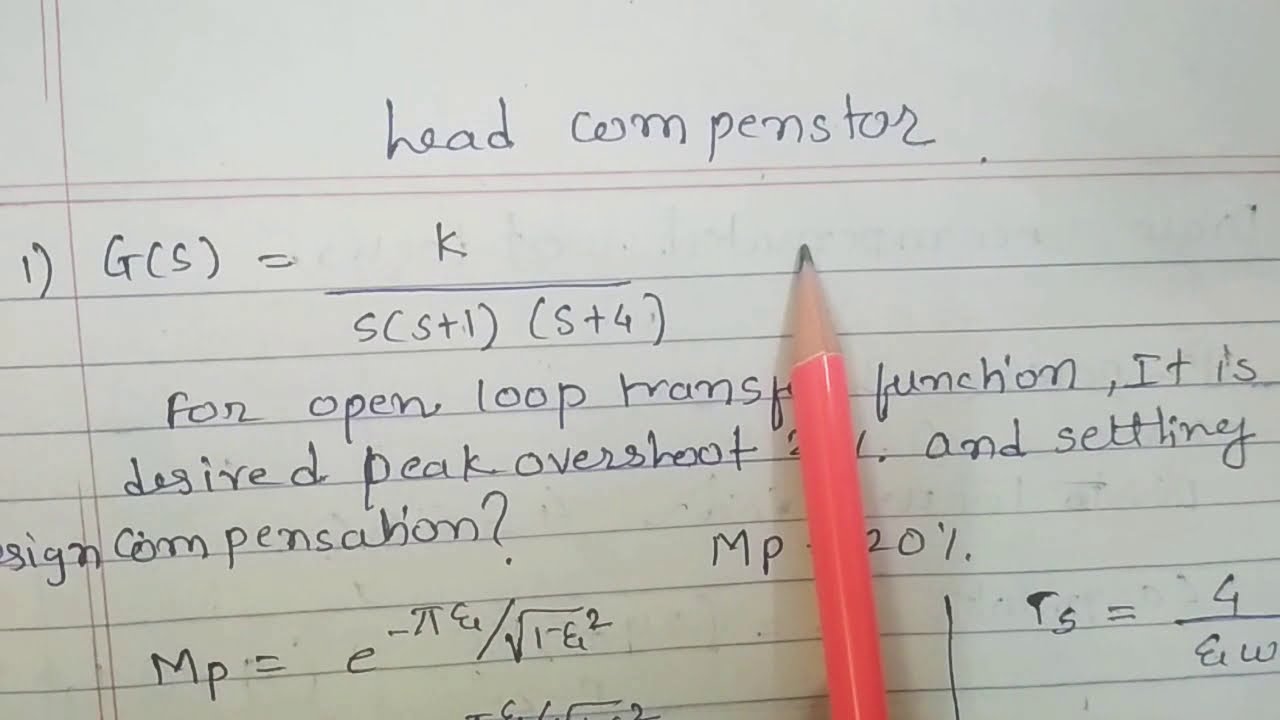 Lead compenstor.
1) G(S) = K / S(S+1) (S+4)
For open loop function, It is
desired peak overshoot and settling
sign compensation?
Mp 20%.
Mp = e^-πξ/√1-ξ²
Ts = 4 / ξω